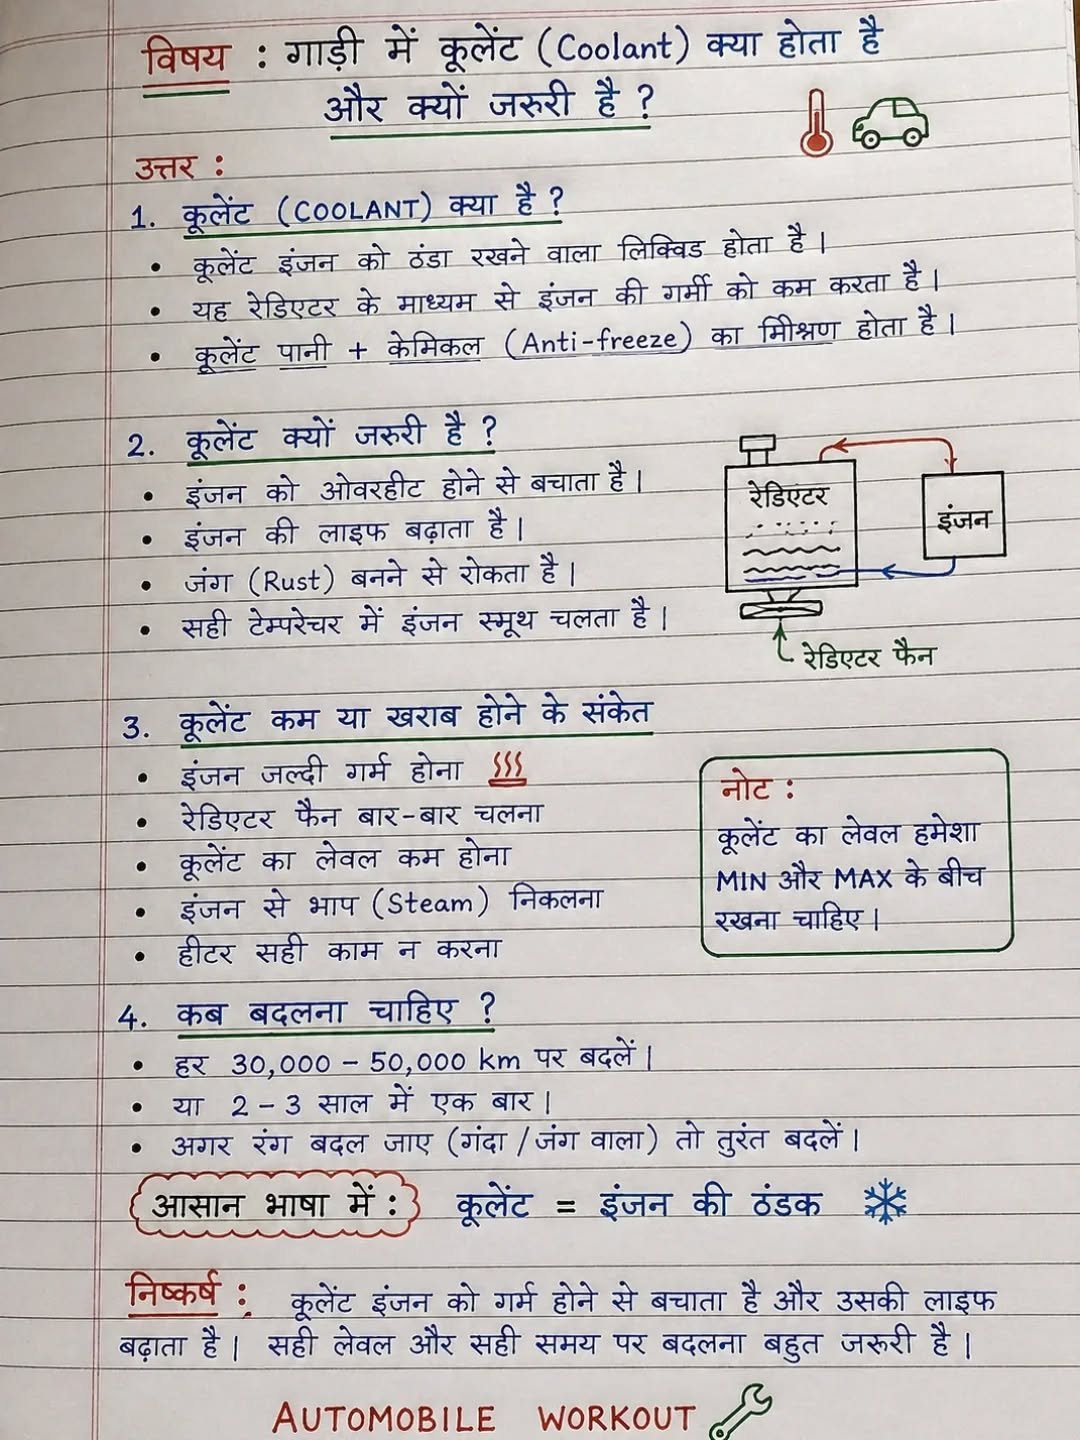 विषय : गाड़ी में कूलेंट (Coolant) क्या होता है
और क्यों जरुरी है ?
उत्तर :
1. कूलेंट (COOLANT) क्या है ?
• कूलेंट इंजन को ठंडा रखने वाला लिक्विड होता है।
• यह रेडिएटर के माध्यम से इंजन की गर्मी को कम करता है।
• कूलेंट पानी + केमिकल (Anti-freeze) का मिीश्रण होता है।
2. कूलेंट क्यों जरुरी है ?
• इंजन को ओवरहीट होने से बचाता है।
• इंजन की लाइफ बढ़ाता है।
• जंग (Rust) बनने से रोकता है।
• सही टेम्परेचर में इंजन स्मूथ चलता है।
रेडिएटर
इंजन
रेडिएटर फैन
3. कूलेंट कम या खराब होने के संकेत
• इंजन जल्दी गर्म होना
• रेडिएटर फैन बार-बार चलना
• कूलेंट का लेवल कम होना
• इंजन से भाप (Steam) निकलना
• हीटर सही काम न करना
नोट :
कूलेंट का लेवल हमेशा
MIN और MAX के बीच
रखना चाहिए।
4. कब बदलना चाहिए ?
• हर 30,000 – 50,000 km पर बदलें।
• या 2 – 3 साल में एक बार।
• अगर रंग बदल जाए (गंदा / जंग वाला) तो तुरंत बदलें।
आसान भाषा में : कूलेंट = इंजन की ठंडक
निष्कर्ष : कूलेंट इंजन को गर्म होने से बचाता है और उसकी लाइफ
बढ़ाता है। सही लेवल और सही समय पर बदलना बहुत जरूरी है।
AUTOMOBILE WORKOUT